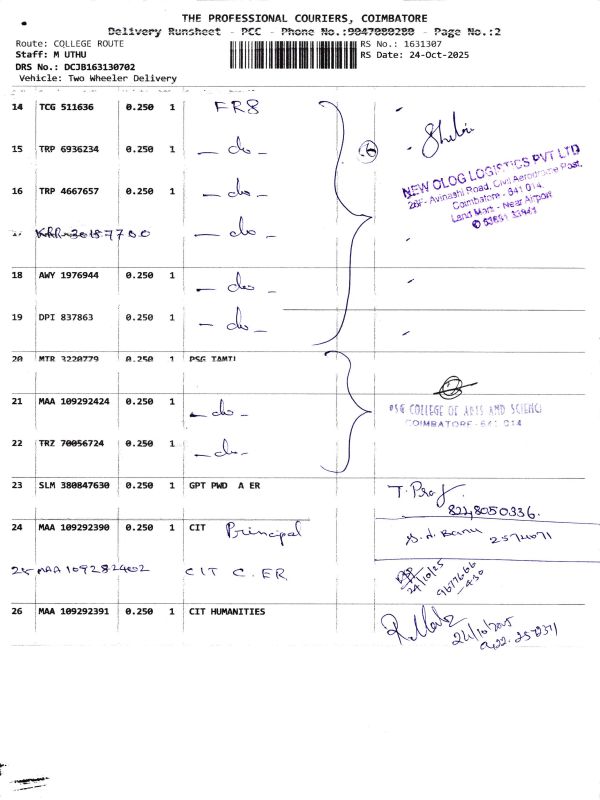 THE PROFESSIONAL COURIERS, COIMBATORE
Delivery Runsheet - PCC - Phone No.:9047080280 - Page No.:2
Route: COLLEGE ROUTE
RS No.: 1631307
Staff: M UTHU
RS Date: 24-Oct-2025
DRS No.: DCJB163130702
Vehicle: Two Wheeler Delivery
14 TCG 511636 0.250 1 FR8
15 TRP 6936234 0.250 1 - do -
16 TRP 4667657 0.250 1 - do -
6
NEW OLOG LOGISTICS PVT LTD
26F- Avinashi Road, Civil Aerodrome Post,
Coimbatore - 641 014.
Land Mark - Near Airport
- do -
18 AWY 1976944 0.250 1 - do -
19 DPI 837863 0.250 1 - do -
20 MTR 3220779 0.250 1 PSG TAMIL
21 MAA 109292424 0.250 1 - do -
PSG COLLEGE OF ARTS AND SCIENCE
COIMBATORE - 641 014
22 TRZ 70056724 0.250 1 - do -
23 SLM 380847630 0.250 1 GPT PWD A ER
8248050336.
24 MAA 109292390 0.250 1 CIT Principal
2574071
25 MAA 109282402 CIT C.ER
24/10/25
26 MAA 109292391 0.250 1 CIT HUMANITIES
24/10/2025